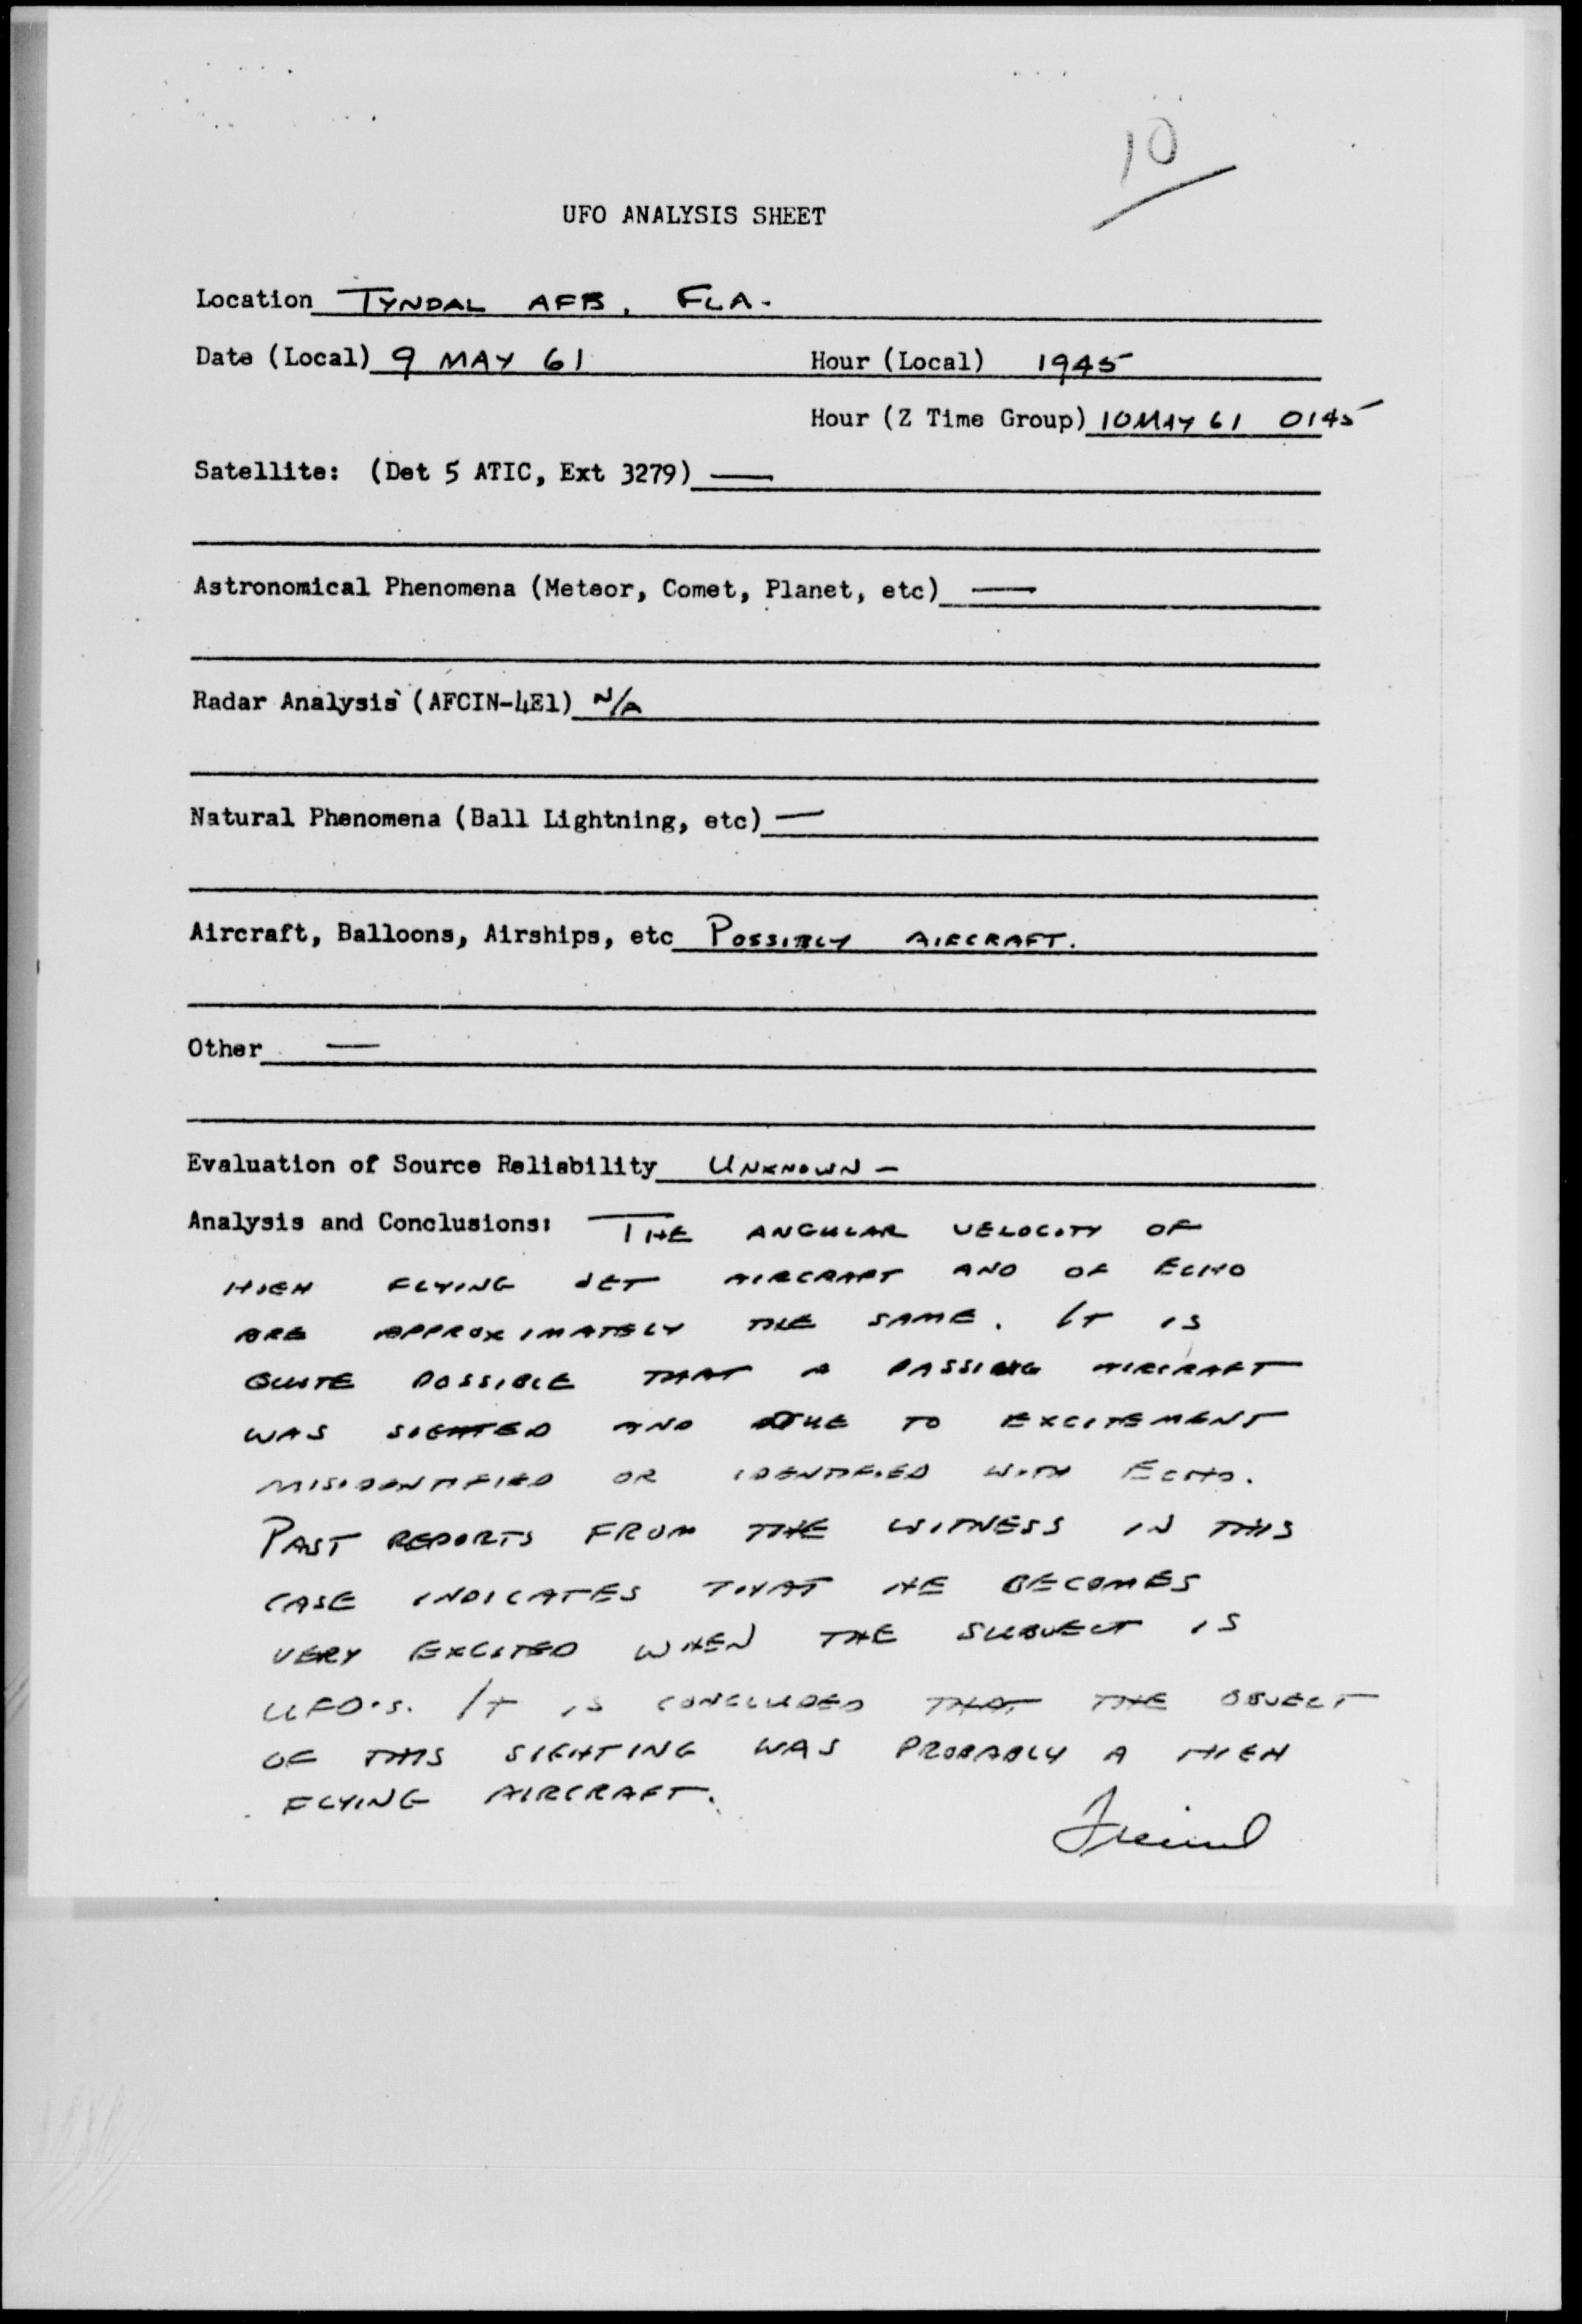 10
UFO ANALYSIS SHEET
Location TYNDAL AFB, FLA.
Date (Local) 9 MAY 61 Hour (Local) 1945
Hour (Z Time Group) 10 MAY 61 0145
Satellite: (Det 5 ATIC, Ext 3279) —
Astronomical Phenomena (Meteor, Comet, Planet, etc) —
Radar Analysis (AFCIN-4E1) N/A
Natural Phenomena (Ball Lightning, etc) —
Aircraft, Balloons, Airships, etc POSSIBLY AIRCRAFT.
Other —
Evaluation of Source Reliability UNKNOWN —
Analysis and Conclusions: THE ANGULAR VELOCITY OF
HIGH FLYING JET AIRCRAFT AND OF ECHO
ARE APPROXIMATELY THE SAME. IT IS
QUITE POSSIBLE THAT A PASSING AIRCRAFT
WAS SIGHTED AND DUE TO EXCITEMENT
MISIDENTIFIED OR IDENTIFIED WITH ECHO.
PAST REPORTS FROM THE WITNESS IN THIS
CASE INDICATES THAT HE BECOMES
VERY EXCITED WHEN THE SUBJECT IS
UFO'S. IT IS CONCLUDED THAT THE OBJECT
OF THIS SIGHTING WAS PROBABLY A HIGH
FLYING AIRCRAFT.